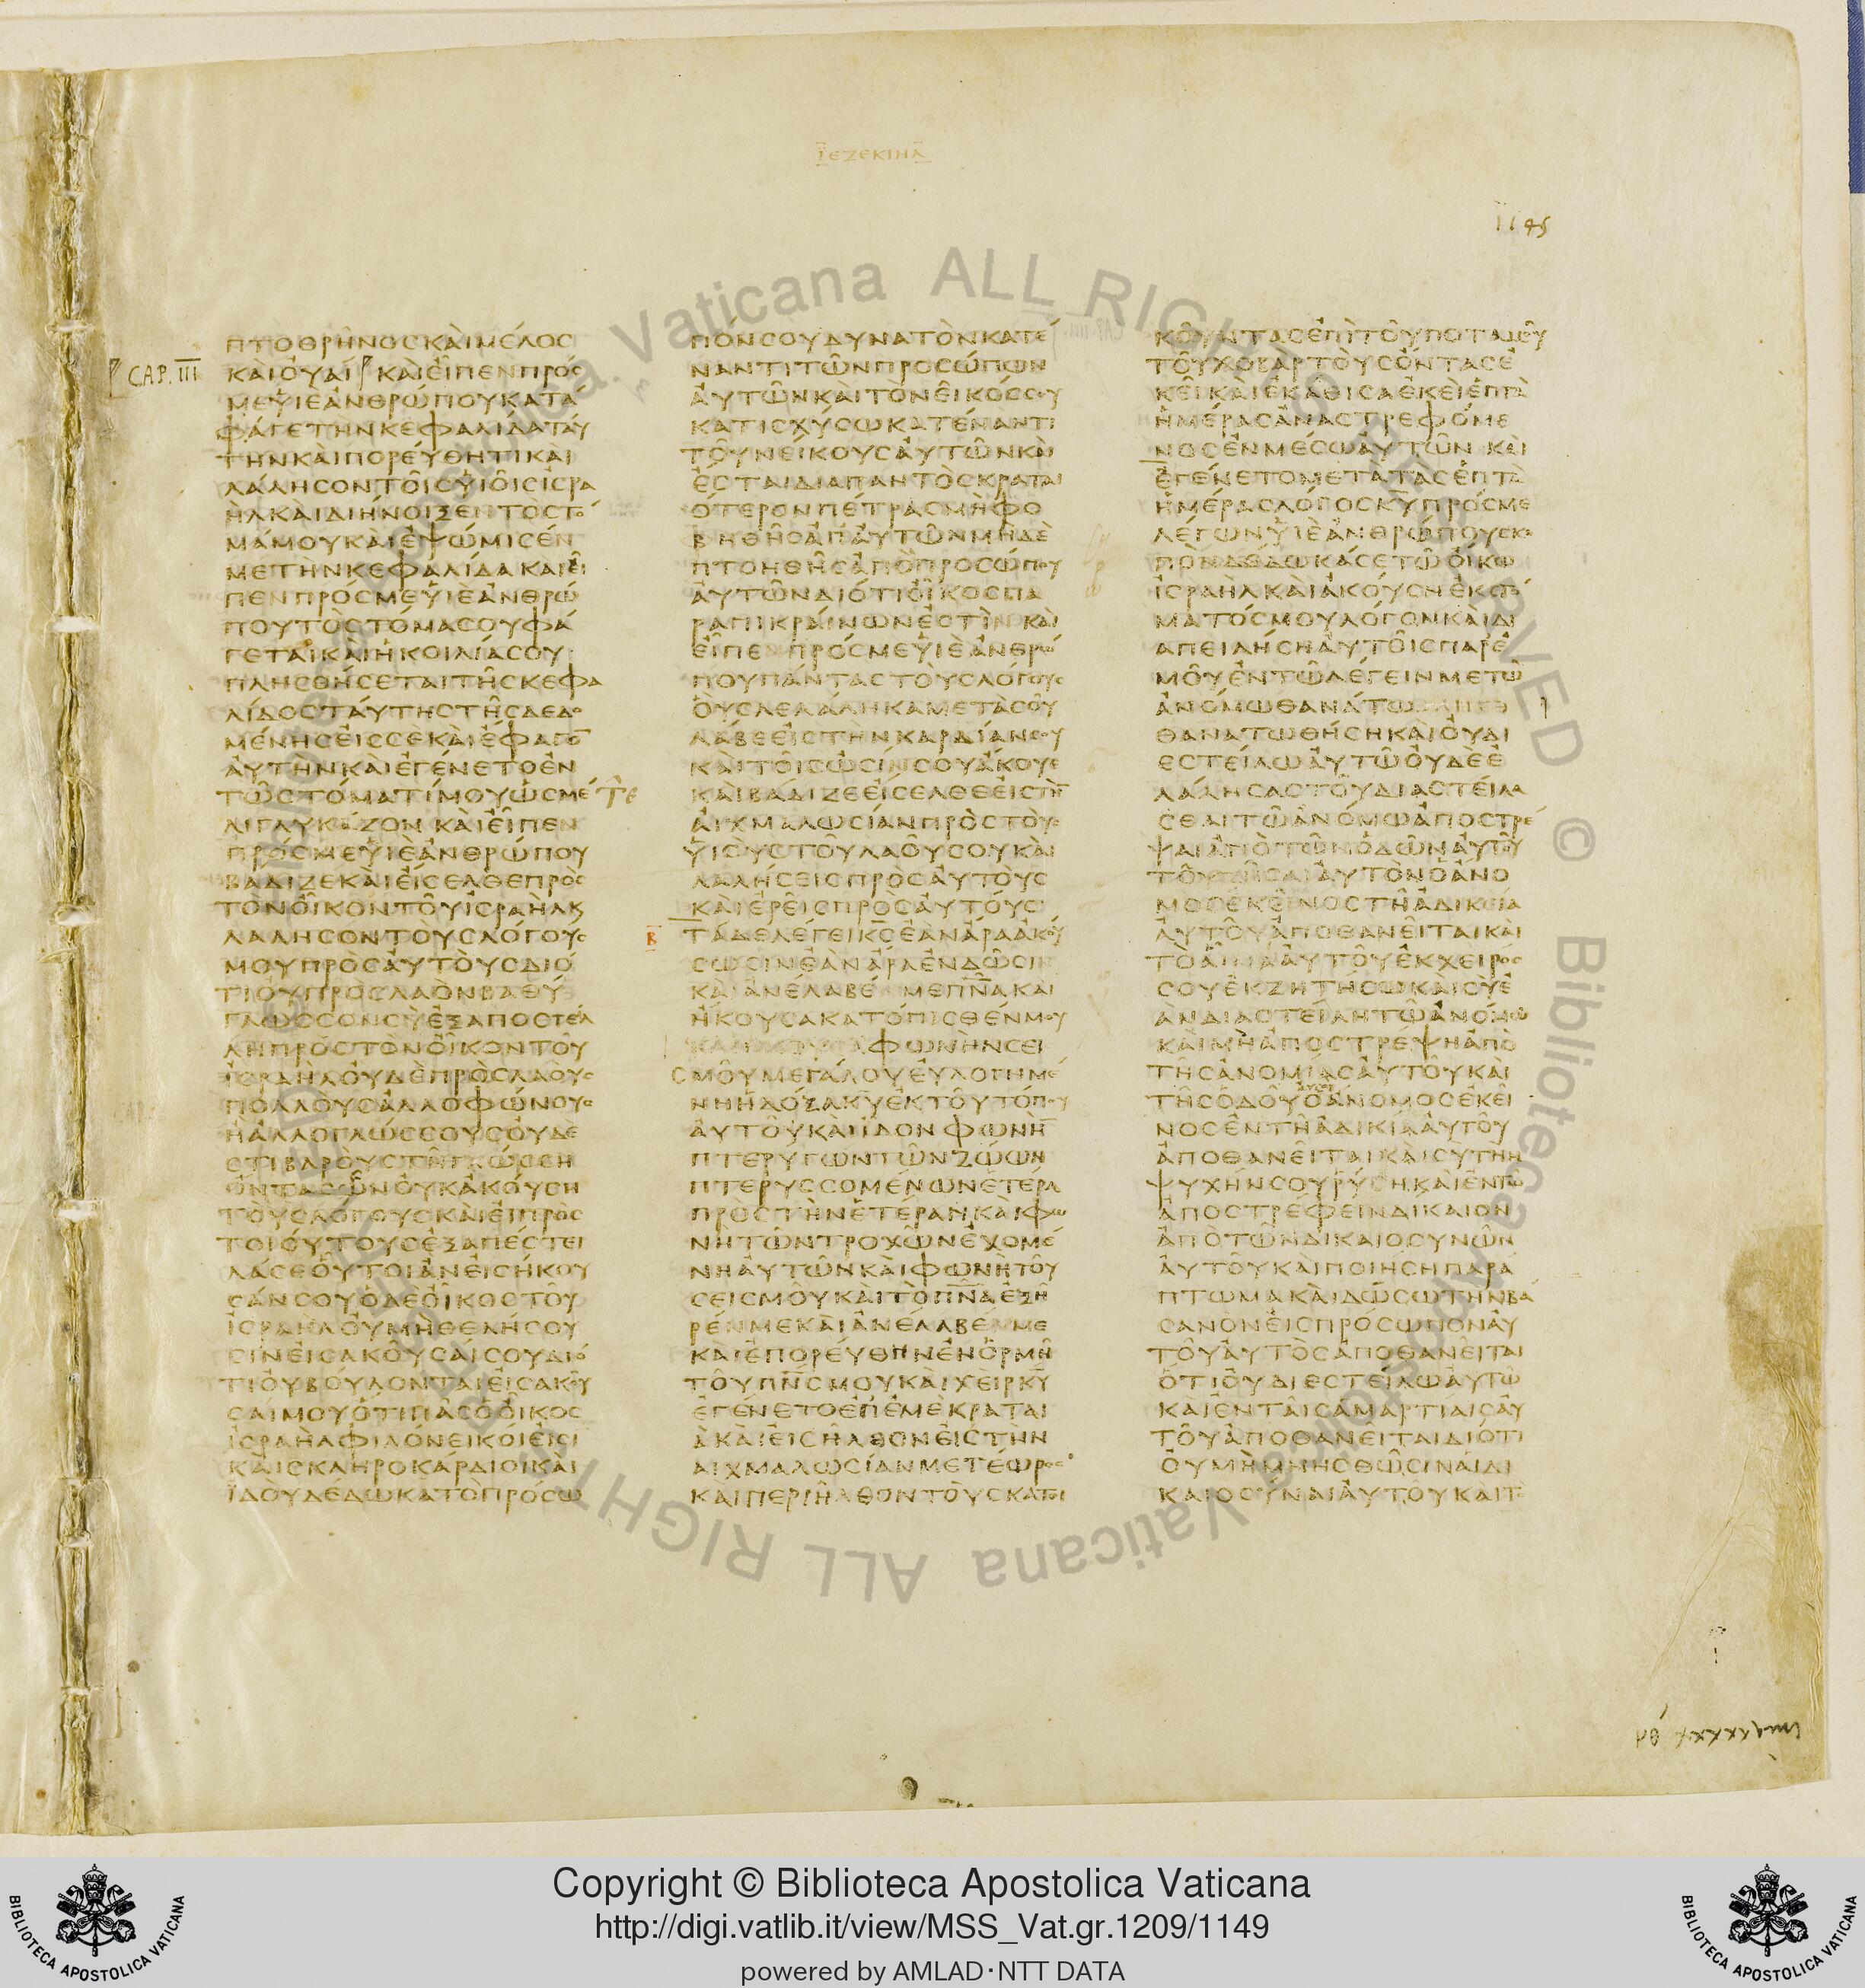 ΙΕΖΕΚΙΗΛ
CAP. III
ΠΤΟΘΡΗΝΟΣΚΑΙΜΕΛΟΣ
ΚΑΙΟΥΑΙ ΚΑΙΕΙΠΕΝΠΡΟΣ
ΜΕΥΙΕΑΝΘΡΩΠΟΥΚΑΤΑ
ΦΑΓΕΤΗΝΚΕΦΑΛΙΔΑΤΑΥ
ΤΗΝΚΑΙΠΟΡΕΥΘΗΤΙΚΑΙ
ΛΑΛΗΣΟΝΤΟΙΣΥΙΟΙΣΙΣΡΑ
ΗΛΚΑΙΔΙΗΝΟΙΞΕΝΤΟΣΤΟ
ΜΑΜΟΥΚΑΙΕΨΩΜΙΣΕΝ
ΜΕΤΗΝΚΕΦΑΛΙΔΑΚΑΙΕΙ
ΠΕΝΠΡΟΣΜΕΥΙΕΑΝΘΡΩ
ΠΟΥΤΟΣΤΟΜΑΣΟΥΦΑ
ΓΕΤΑΙΚΑΙΗΚΟΙΛΙΑΣΟΥ
ΠΛΗΣΘΗΣΕΤΑΙΤΗΣΚΕΦΑ
ΛΙΔΟΣΤΑΥΤΗΣΤΗΣΔΕΔΟ
ΜΕΝΗΣΕΙΣΣΕΚΑΙΕΦΑΓΟ̅
ΑΥΤΗΝΚΑΙΕΓΕΝΕΤΟΕΝ
ΤΩΣΤΟΜΑΤΙΜΟΥΩΣΜΕ
ΛΙΓΛΥΚΑΖΟΝΚΑΙΕΙΠΕΝ
ΠΡΟΣΜΕΥΙΕΑΝΘΡΩΠΟΥ
ΒΑΔΙΖΕΚΑΙΕΙΣΕΛΘΕΠΡΟΣ
ΤΟΝΟΙΚΟΝΤΟΥΙΣΡΑΗΛΚ
ΛΑΛΗΣΟΝΤΟΥΣΛΟΓΟΥΣ
ΜΟΥΠΡΟΣΑΥΤΟΥΣΔΙΟ
ΤΙΟΥΠΡΟΣΛΑΟΝΒΑΘΥ
ΓΛΩΣΣΟΝΣΥΕΞΑΠΟΣΤΕΛ
ΛΗΠΡΟΣΤΟΝΟΙΚΟΝΤΟΥ
ΙΣΡΑΗΛΟΥΔΕΠΡΟΣΛΑΟΥΣ
ΠΟΛΛΟΥΣΑΛΛΟΦΩΝΟΥΣ
ΗΑΛΛΟΓΛΩΣΣΟΥΣΟΥΔΕ
ΣΤΙΒΑΡΟΥΣΤΗΓΛΩΣΣΗ
ΟΝΤΑΣΩΝΟΥΚΑΚΟΥΣΗ
ΤΟΥΣΛΟΓΟΥΣΚΑΙΕΙΠΡΟΣ
ΤΟΙΟΥΤΟΥΣΕΞΑΠΕΣΤΕΙ
ΛΑΣΕΟΥΤΟΙΑΝΕΙΣΗΚΟΥ
ΣΑΝΣΟΥΟΔΕΟΙΚΟΣΤΟΥ
ΙΣΡΑΗΛΟΥΜΗΘΕΛΗΣΟΥ
ΣΙΝΕΙΣΑΚΟΥΣΑΙΣΟΥΔΙΟ
ΤΙΟΥΒΟΥΛΟΝΤΑΙΕΙΣΑΚΟΥ
ΣΑΙΜΟΥΟΤΙΠΑΣΟΟΙΚΟΣ
ΙΣΡΑΗΛΦΙΛΟΝΕΙΚΟΙΕΙΣΙ
ΚΑΙΣΚΛΗΡΟΚΑΡΔΙΟΙΚΑΙ
ΙΔΟΥΔΕΔΩΚΑΤΟΠΡΟΣΩ
ΠΟΝΣΟΥΔΥΝΑΤΟΝΚΑΤΕ
ΝΑΝΤΙΤΩΝΠΡΟΣΩΠΩΝ
ΑΥΤΩΝΚΑΙΤΟΝΕΙΚΟΣΣΟΥ
ΚΑΤΙΣΧΥΣΩΚΑΤΕΝΑΝΤΙ
ΤΟΥΝΕΙΚΟΥΣΑΥΤΩΝΚΑΙ
ΕΣΤΑΙΔΙΑΠΑΝΤΟΣΚΡΑΤΑΙ
ΟΤΕΡΟΝΠΕΤΡΑΣΜΗΦΟ
ΒΗΘΗΣΑΠΑΥΤΩΝΜΗΔΕ
ΠΤΟΗΘΗΣΑΠΟΠΡΟΣΩΠΟΥ
ΑΥΤΩΝΔΙΟΤΙΟΙΚΟΣΠΑ
ΡΑΠΙΚΡΑΙΝΩΝΕΣΤΙΝΚΑΙ
ΕΙΠΕΝΠΡΟΣΜΕΥΙΕΑΝΘΡΩ
ΠΟΥΠΑΝΤΑΣΤΟΥΣΛΟΓΟΥΣ
ΟΥΣΛΕΛΑΛΗΚΑΜΕΤΑΣΟΥ
ΛΑΒΕΕΙΣΤΗΝΚΑΡΔΙΑΝΣΟΥ
ΚΑΙΤΟΙΣΩΣΙΝΣΟΥΑΚΟΥΕ
ΚΑΙΒΑΔΙΖΕΕΙΣΕΛΘΕΕΙΣΤΗ̅
ΑΙΧΜΑΛΩΣΙΑΝΠΡΟΣΤΟΥΣ
ΥΙΟΥΣΤΟΥΛΑΟΥΣΟΥΚΑΙ
ΛΑΛΗΣΕΙΣΠΡΟΣΑΥΤΟΥΣ
ΚΑΙΕΡΕΙΣΠΡΟΣΑΥΤΟΥΣ
Β ΤΑΔΕΛΕΓΕΙΚ̅Σ̅ΕΑΝΑΡΑΑΚΟΥ
ΣΩΣΙΝΕΑΝΑΡΑΕΝΔΩΣΙΝ
ΚΑΙΑΝΕΛΑΒΕΝΜΕΠ̅Ν̅Α̅ΚΑΙ
ΗΚΟΥΣΑΚΑΤΟΠΙΣΘΕΝΜΟΥ
ΦΩΝΗΝΣΕΙ
ΣΜΟΥΜΕΓΑΛΟΥΕΥΛΟΓΗΜΕ
ΝΗΗΔΟΞΑΚ̅Υ̅ΕΚΤΟΥΤΟΠΟΥ
ΑΥΤΟΥΚΑΙΙΔΟΝΦΩΝΗ̅
ΠΤΕΡΥΓΩΝΤΩΝΖΩΩΝ
ΠΤΕΡΥΣΣΟΜΕΝΩΝΕΤΕΡΑ
ΠΡΟΣΤΗΝΕΤΕΡΑΝΚΑΙΦΩ
ΝΗΤΩΝΤΡΟΧΩΝΕΧΟΜΕ
ΝΗΑΥΤΩΝΚΑΙΦΩΝΗΤΟΥ
ΣΕΙΣΜΟΥΚΑΙΤΟΠ̅Ν̅Α̅ΕΞΗ
ΡΕΝΜΕΚΑΙΑΝΕΛΑΒΕΝΜΕ
ΚΑΙΕΠΟΡΕΥΘΗΝΕΝΟΡΜΗ
ΤΟΥΠ̅Ν̅Σ̅ΜΟΥΚΑΙΧΕΙΡΚ̅Υ̅
ΕΓΕΝΕΤΟΕΠΕΜΕΚΡΑΤΑΙ
ΑΚΑΙΕΙΣΗΛΘΟΝΕΙΣΤΗΝ
ΑΙΧΜΑΛΩΣΙΑΝΜΕΤΕΩΡΟΣ
ΚΑΙΠΕΡΙΗΛΘΟΝΤΟΥΣΚΑΤΟΙ
ΚΟΥΝΤΑΣΕΠΙΤΟΥΠΟΤΑΜΟΥ
ΤΟΥΧΟΒΑΡΤΟΥΣΟΝΤΑΣΕ
ΚΕΙΚΑΙΕΚΑΘΙΣΑΕΚΕΙΕΠΤΑ
ΗΜΕΡΑΣΑΝΑΣΤΡΕΦΟΜΕ
ΝΟΣΕΝΜΕΣΩΑΥΤΩΝΚΑΙ
ΕΓΕΝΕΤΟΜΕΤΑΤΑΣΕΠΤΑ
ΗΜΕΡΑΣΛΟΓΟΣΚ̅Υ̅ΠΡΟΣΜΕ
ΛΕΓΩΝΥΙΕΑΝΘΡΩΠΟΥΣΚΟ
ΠΟΝΔΕΔΩΚΑΣΕΤΩΟΙΚΩ
ΙΣΡΑΗΛΚΑΙΑΚΟΥΣΗΕΚΣΤΟ
ΜΑΤΟΣΜΟΥΛΟΓΟΝΚΑΙΔΙ
ΑΠΕΙΛΗΣΗΑΥΤΟΙΣΠΑΡΕ
ΜΟΥΕΝΤΩΛΕΓΕΙΝΜΕΤΩ
ΑΝΟΜΩΘΑΝΑΤΩ
ΘΑΝΑΤΩΘΗΣΗΚΑΙΟΥΔΙ
ΕΣΤΕΙΛΩΑΥΤΩΟΥΔΕΕ
ΛΑΛΗΣΑΣΤΟΥΔΙΑΣΤΕΙΛΑ
ΣΘΑΙΤΩΑΝΟΜΩΑΠΟΣΤΡΕ
ΨΑΙΑΠΟΤΩΝΟΔΩΝΑΥΤΟΥ
ΤΟΥΖΗΣΑΙΑΥΤΟΝΟΑΝΟ
ΜΟΣΕΚΕΙΝΟΣΤΗΑΔΙΚΕΙΑ
ΑΥΤΟΥΑΠΟΘΑΝΕΙΤΑΙΚΑΙ
ΤΟΑΙΜΑΑΥΤΟΥΕΚΧΕΙΡΟΣ
ΣΟΥΕΚΖΗΤΗΣΩΚΑΙΣΥΕ
ΑΝΔΙΑΣΤΕΙΛΗΤΩΑΝΟΜΩ
ΚΑΙΜΗΑΠΟΣΤΡΕΨΗΑΠΟ
ΤΗΣΑΝΟΜΙΑΣΑΥΤΟΥΚΑΙ
ΤΗΣΟΔΟΥΟΑΝΟΜΟΣΕΚΕΙ
ΝΟΣΕΝΤΗΑΔΙΚΙΑΑΥΤΟΥ
ΑΠΟΘΑΝΕΙΤΑΙΚΑΙΣΥΤΗΝ
ΨΥΧΗΝΣΟΥΡΥΣΗΚΑΙΕΝΤΩ
ΑΠΟΣΤΡΕΦΕΙΝΔΙΚΑΙΟΝ
ΑΠΟΤΩΝΔΙΚΑΙΟΣΥΝΩΝ
ΑΥΤΟΥΚΑΙΠΟΙΗΣΗΠΑΡΑ
ΠΤΩΜΑΚΑΙΔΩΣΩΤΗΝΒΑ
ΣΑΝΟΝΕΙΣΠΡΟΣΩΠΟΝΑΥ
ΤΟΥΑΥΤΟΣΑΠΟΘΑΝΕΙΤΑΙ
ΟΤΙΟΥΔΙΕΣΤΕΙΛΩΑΥΤΩ
ΚΑΙΕΝΤΑΙΣΑΜΑΡΤΙΑΙΣΑΥ
ΤΟΥΑΠΟΘΑΝΕΙΤΑΙΔΙΟΤΙ
ΟΥΜΗΜΝΗΣΘΩΣΙΝΑΙΔΙ
ΚΑΙΟΣΥΝΑΙΑΥΤΟΥΚΑΙΤΟ
ALL RIGHTS RESERVED © Biblioteca Apostolica Vaticana
Copyright © Biblioteca Apostolica Vaticana
http://digi.vatlib.it/view/MSS_Vat.gr.1209/1149
powered by AMLAD·NTT DATA
BIBLIOTECA APOSTOLICA VATICANA
BIBLIOTECA APOSTOLICA VATICANA